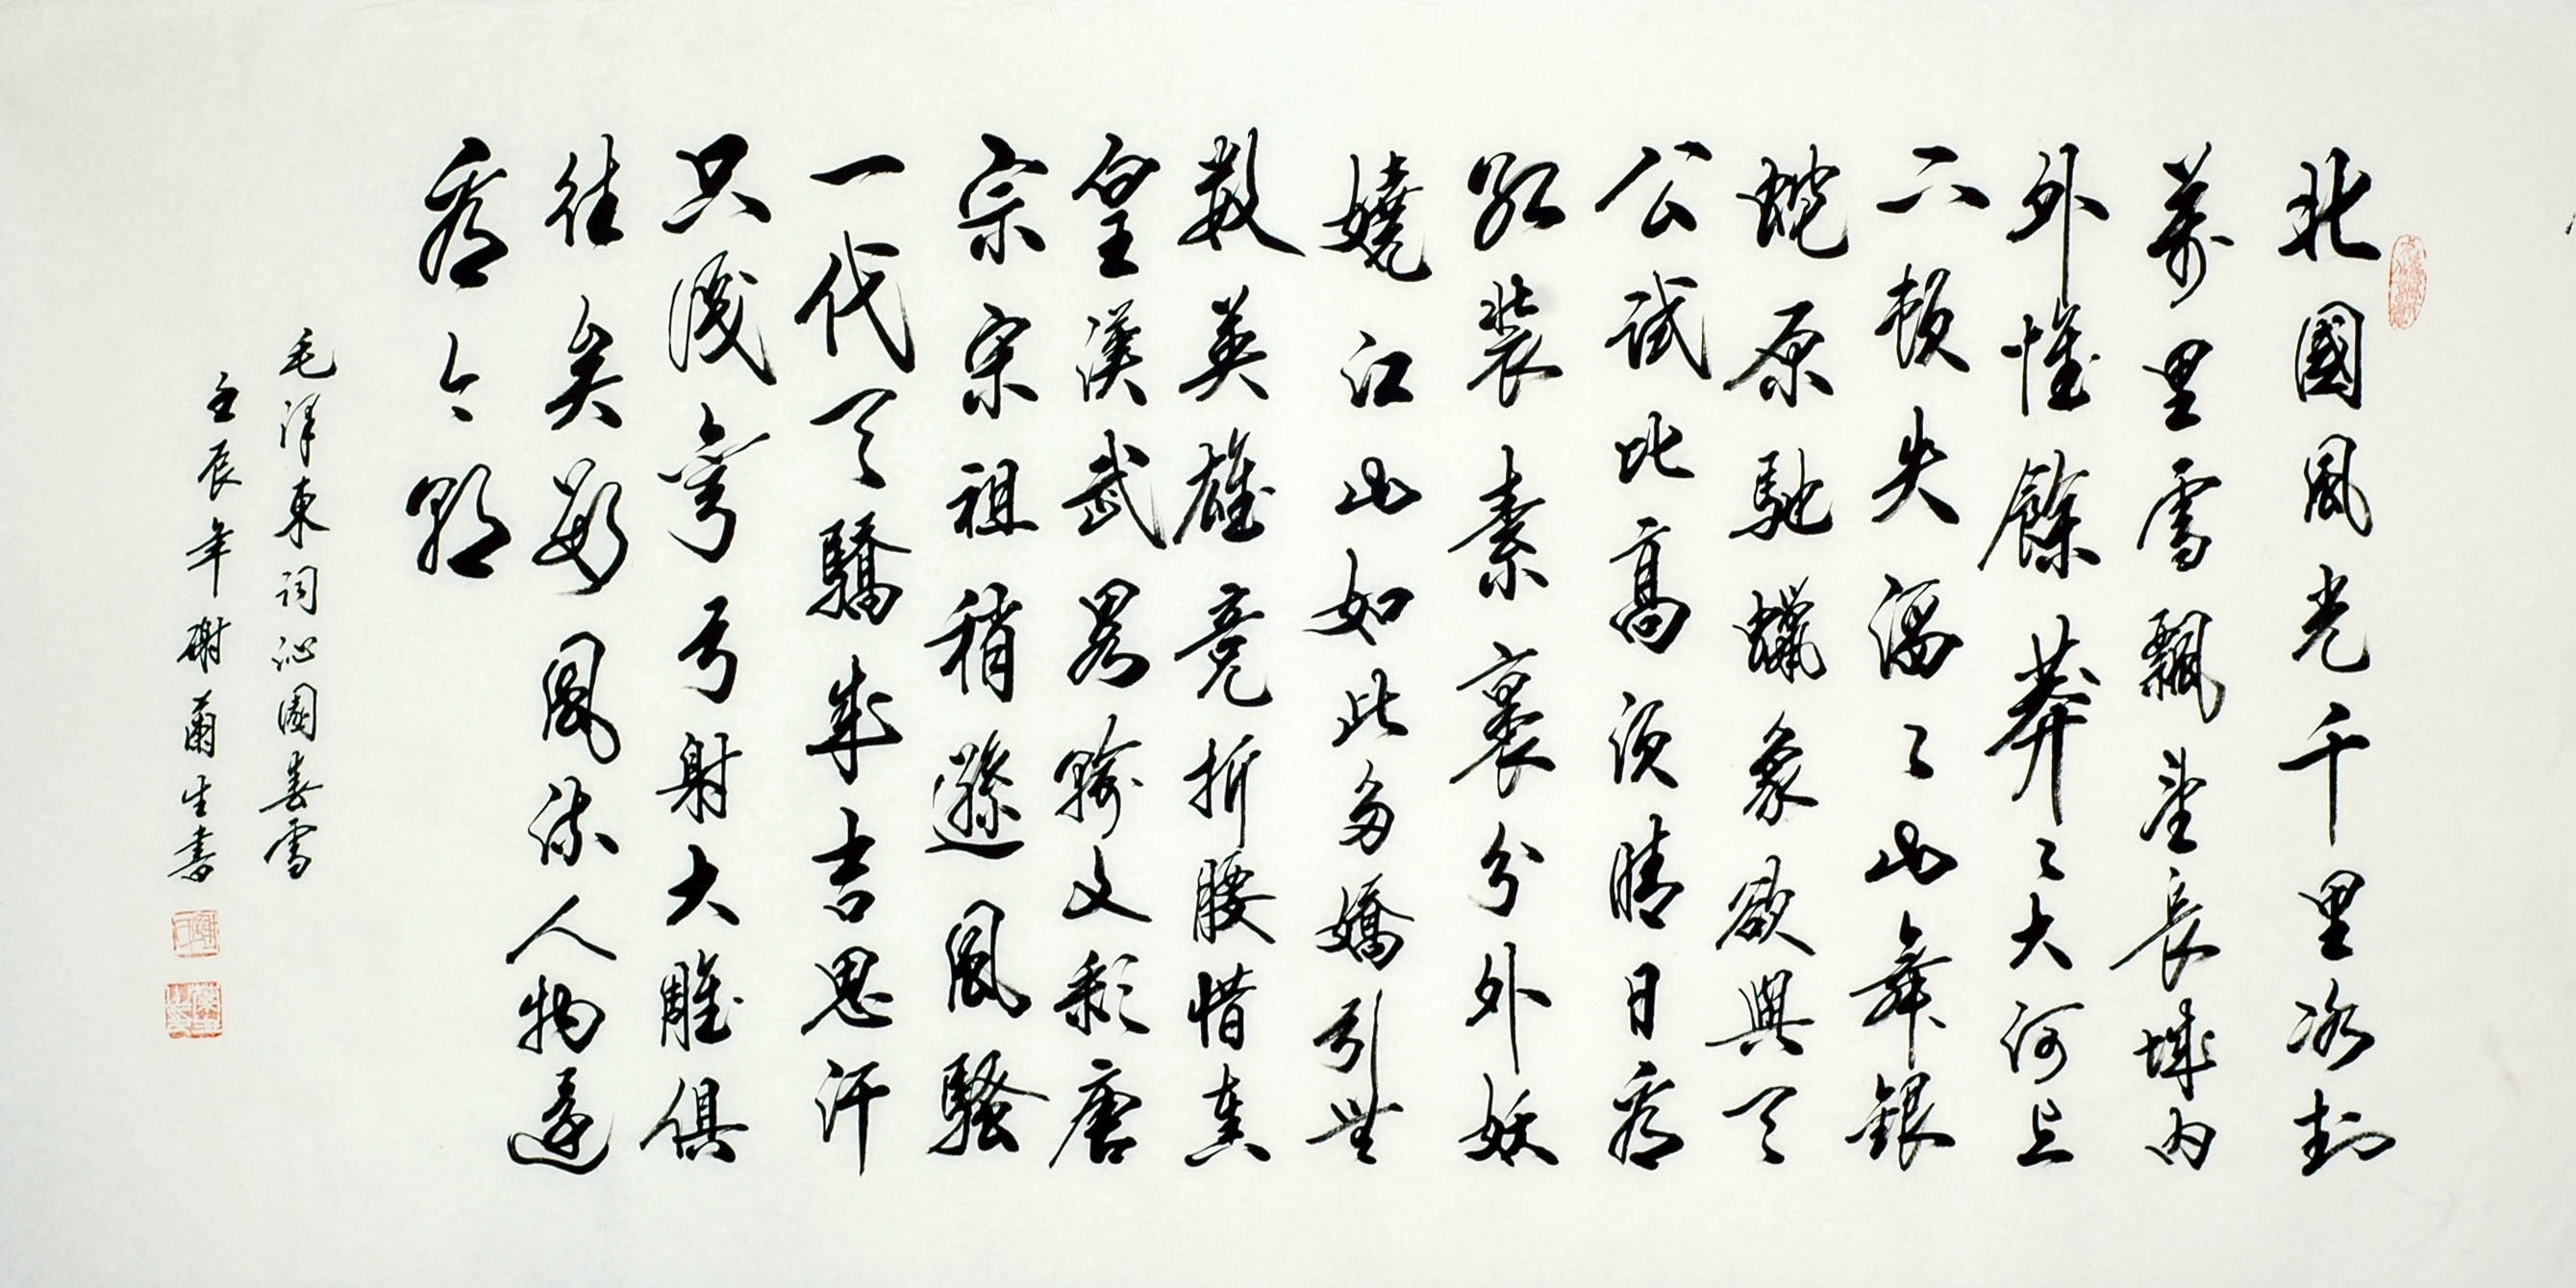 北國風光千里冰封
萬里雪飄望長城内
外惟餘莽〻大河上
下頓失滔〻山舞銀
蛇原馳蠟象欲與天
公試比高須晴日看
紅裝素裹分外妖
嬈江山如此多嬌引無
數英雄竞折腰惜秦
皇漢武畧輸文彩唐
宗宋祖稍遜風騷
一代天驕成吉思汗
只識彎弓射大雕俱
往矣數風流人物還
看今朝
毛澤東詞沁園春雪
壬辰年謝生書